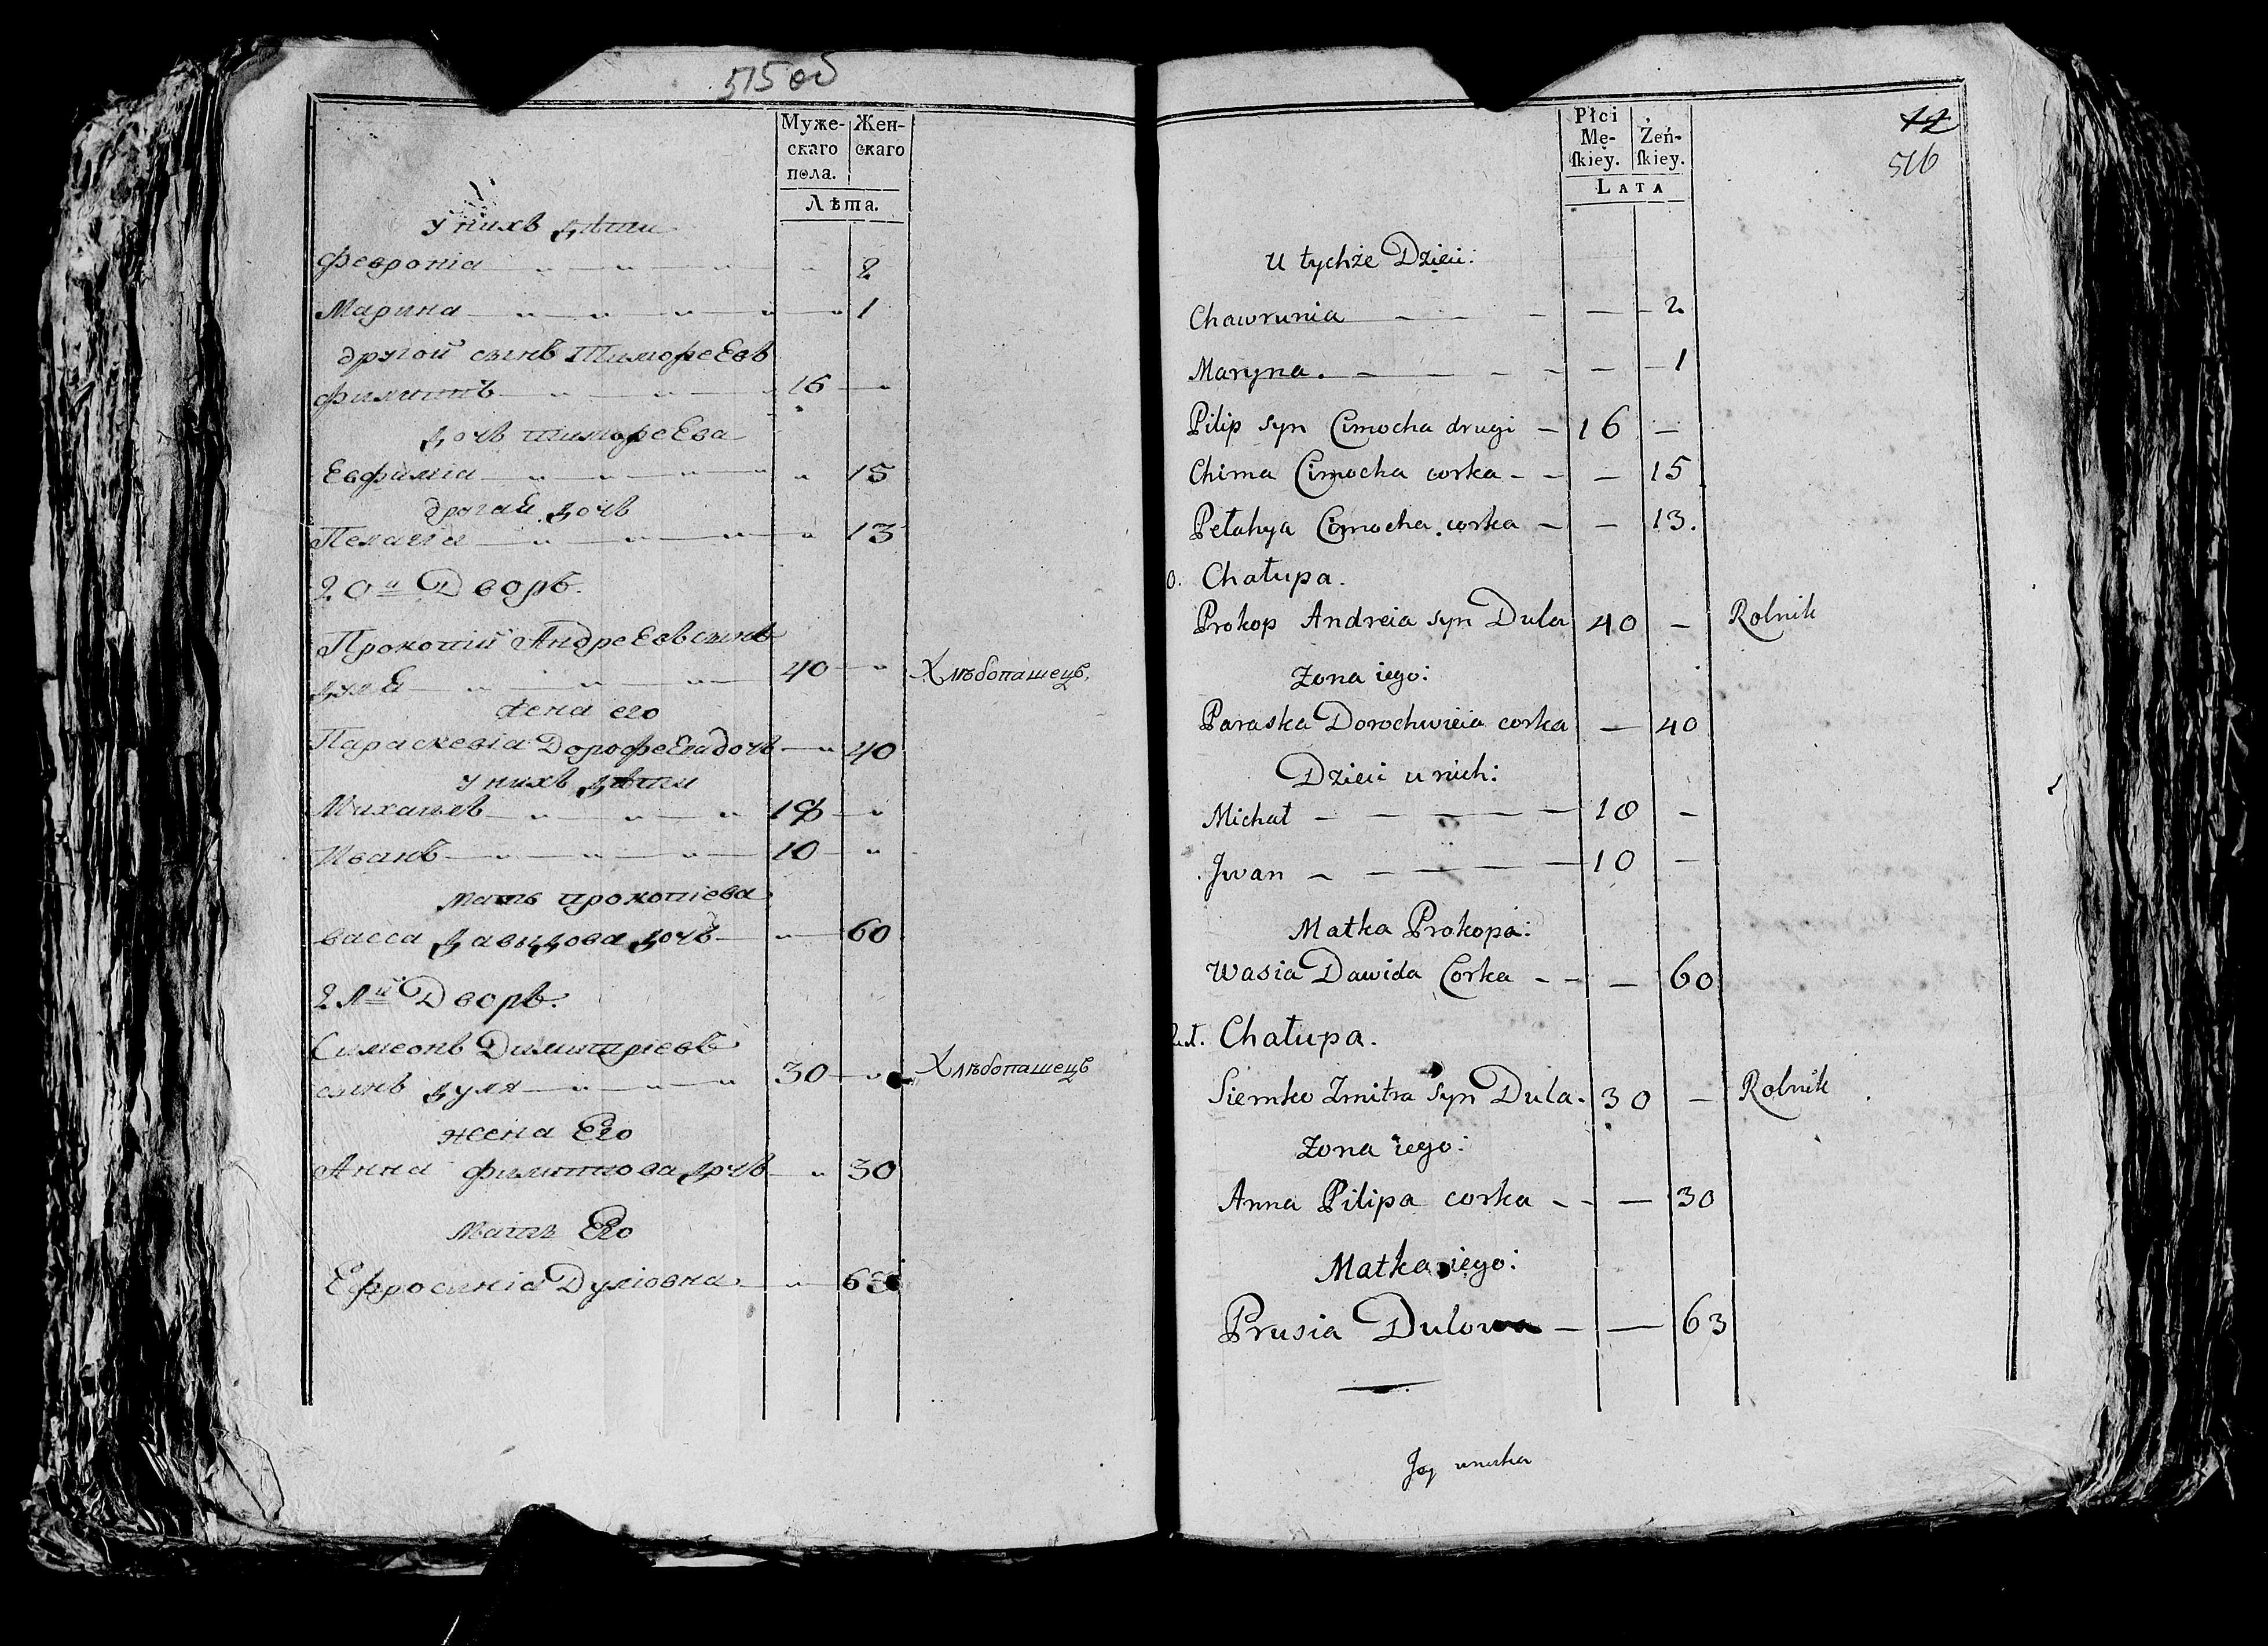 515 об
Муже-
скаго
пола.
Жен-
скаго
Лѣта.
У нихъ дѣти
Феврониа 2
Марина 1
другой сынъ Тимофеевъ
Филиппъ 16
дочь Тимофеева
Евфимиа 15
другая дочь
Пелагиа 13
20й Дворъ.
Прокопий Андреевъ сынъ
Дуля 40 Хлѣбопашецъ,
жена его
Параскевіа Дорофеева дочь 40
У нихъ дѣти
Михаилъ 18
Иванъ 10
мать прокопіева
васса давыдова дочь 60
21й Дворъ.
Симеонъ Димитріевъ
сынъ дуля 30 Хлѣбопашецъ
жена Его
Анна филиппова дочь 30
мать Его
Ефросиніа Дуліовна 63
Płci
Mę-
ſkiey.
Żeń-
ſkiey.
LATA
516
U tychże Dzieci:
Chawrunia 2
Maryna. 1
Pilip syn Cimocha drugi 16
Chima Cimocha corka 15
Pełahya Cimocha corka 13.
0. Chałupa.
Prokop Andreia syn Dula 40 Rolnik
Żona iego:
Paraska Dorochwieia corka 40
Dzieci u nich:
Michał 18
Jwan 10
Matka Prokopa:
Wasia Dawida Corka 60
Chałupa.
Siemko Zmitra syn Dula. 30 Rolnik
Żona iego:
Anna Pilipa corka 30
Matka iego:
Prusia Dulowa 63
Jey wnuka